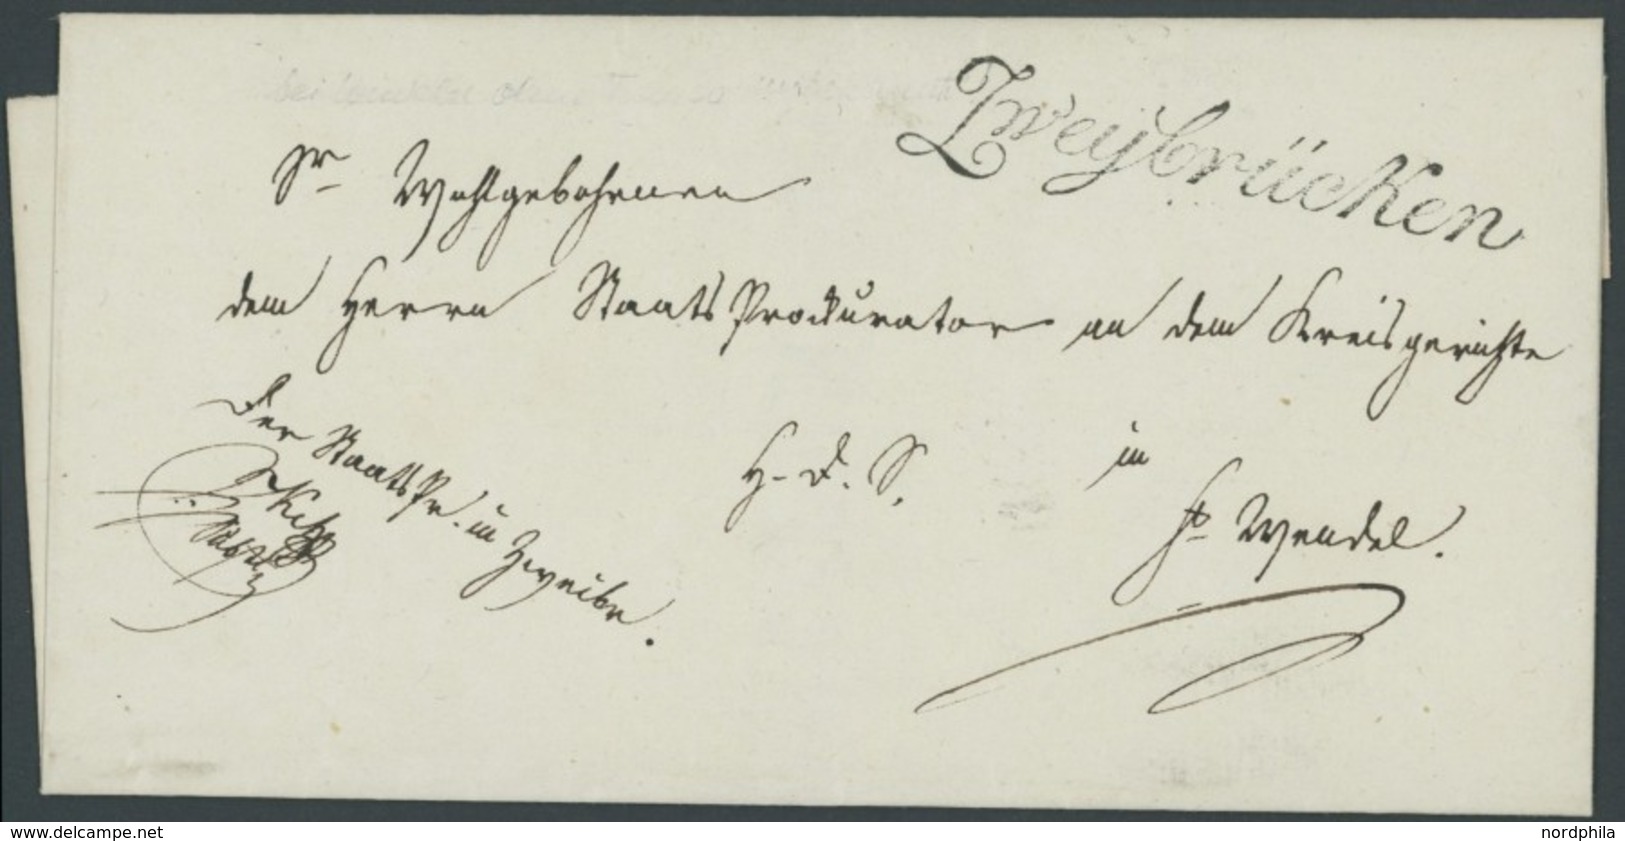 Zweybrücken
Sr Wohlgebohrnen
dem Herrn Staats Prockurator an dem Kreisgerichte
in
H. D. S.
St Wendel.
Der Staats Pr. in Zweibr.
www.delcampe.net
nordphila